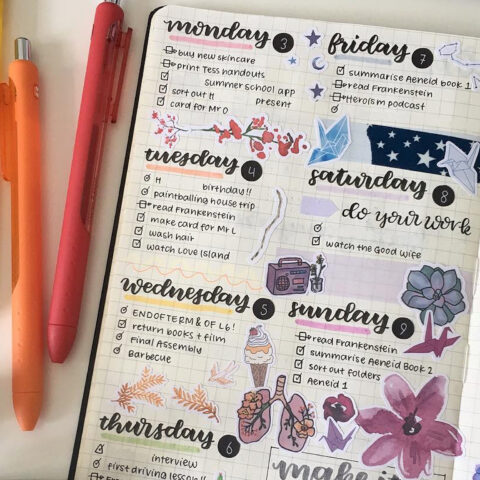 monday 3
buy new skincare
print Tess handouts
summer school app
sort out H present
card for Mr O
tuesday 4
H birthday!!
paintballing house trip
read Frankenstein
make card for Mr L
wash hair
watch Love Island
wednesday 5
END OF TERM & OF L6!
return books + film
Final Assembly
Barbecue
thursday 6
interview
first driving lesson!!
friday 7
summarise Aeneid book 1
read Frankenstein
Heroism podcast
saturday 8
do your work
watch the Good Wife
sunday 9
read Frankenstein
summarise Aeneid Book 2
sort out folders
Aeneid 1
make it